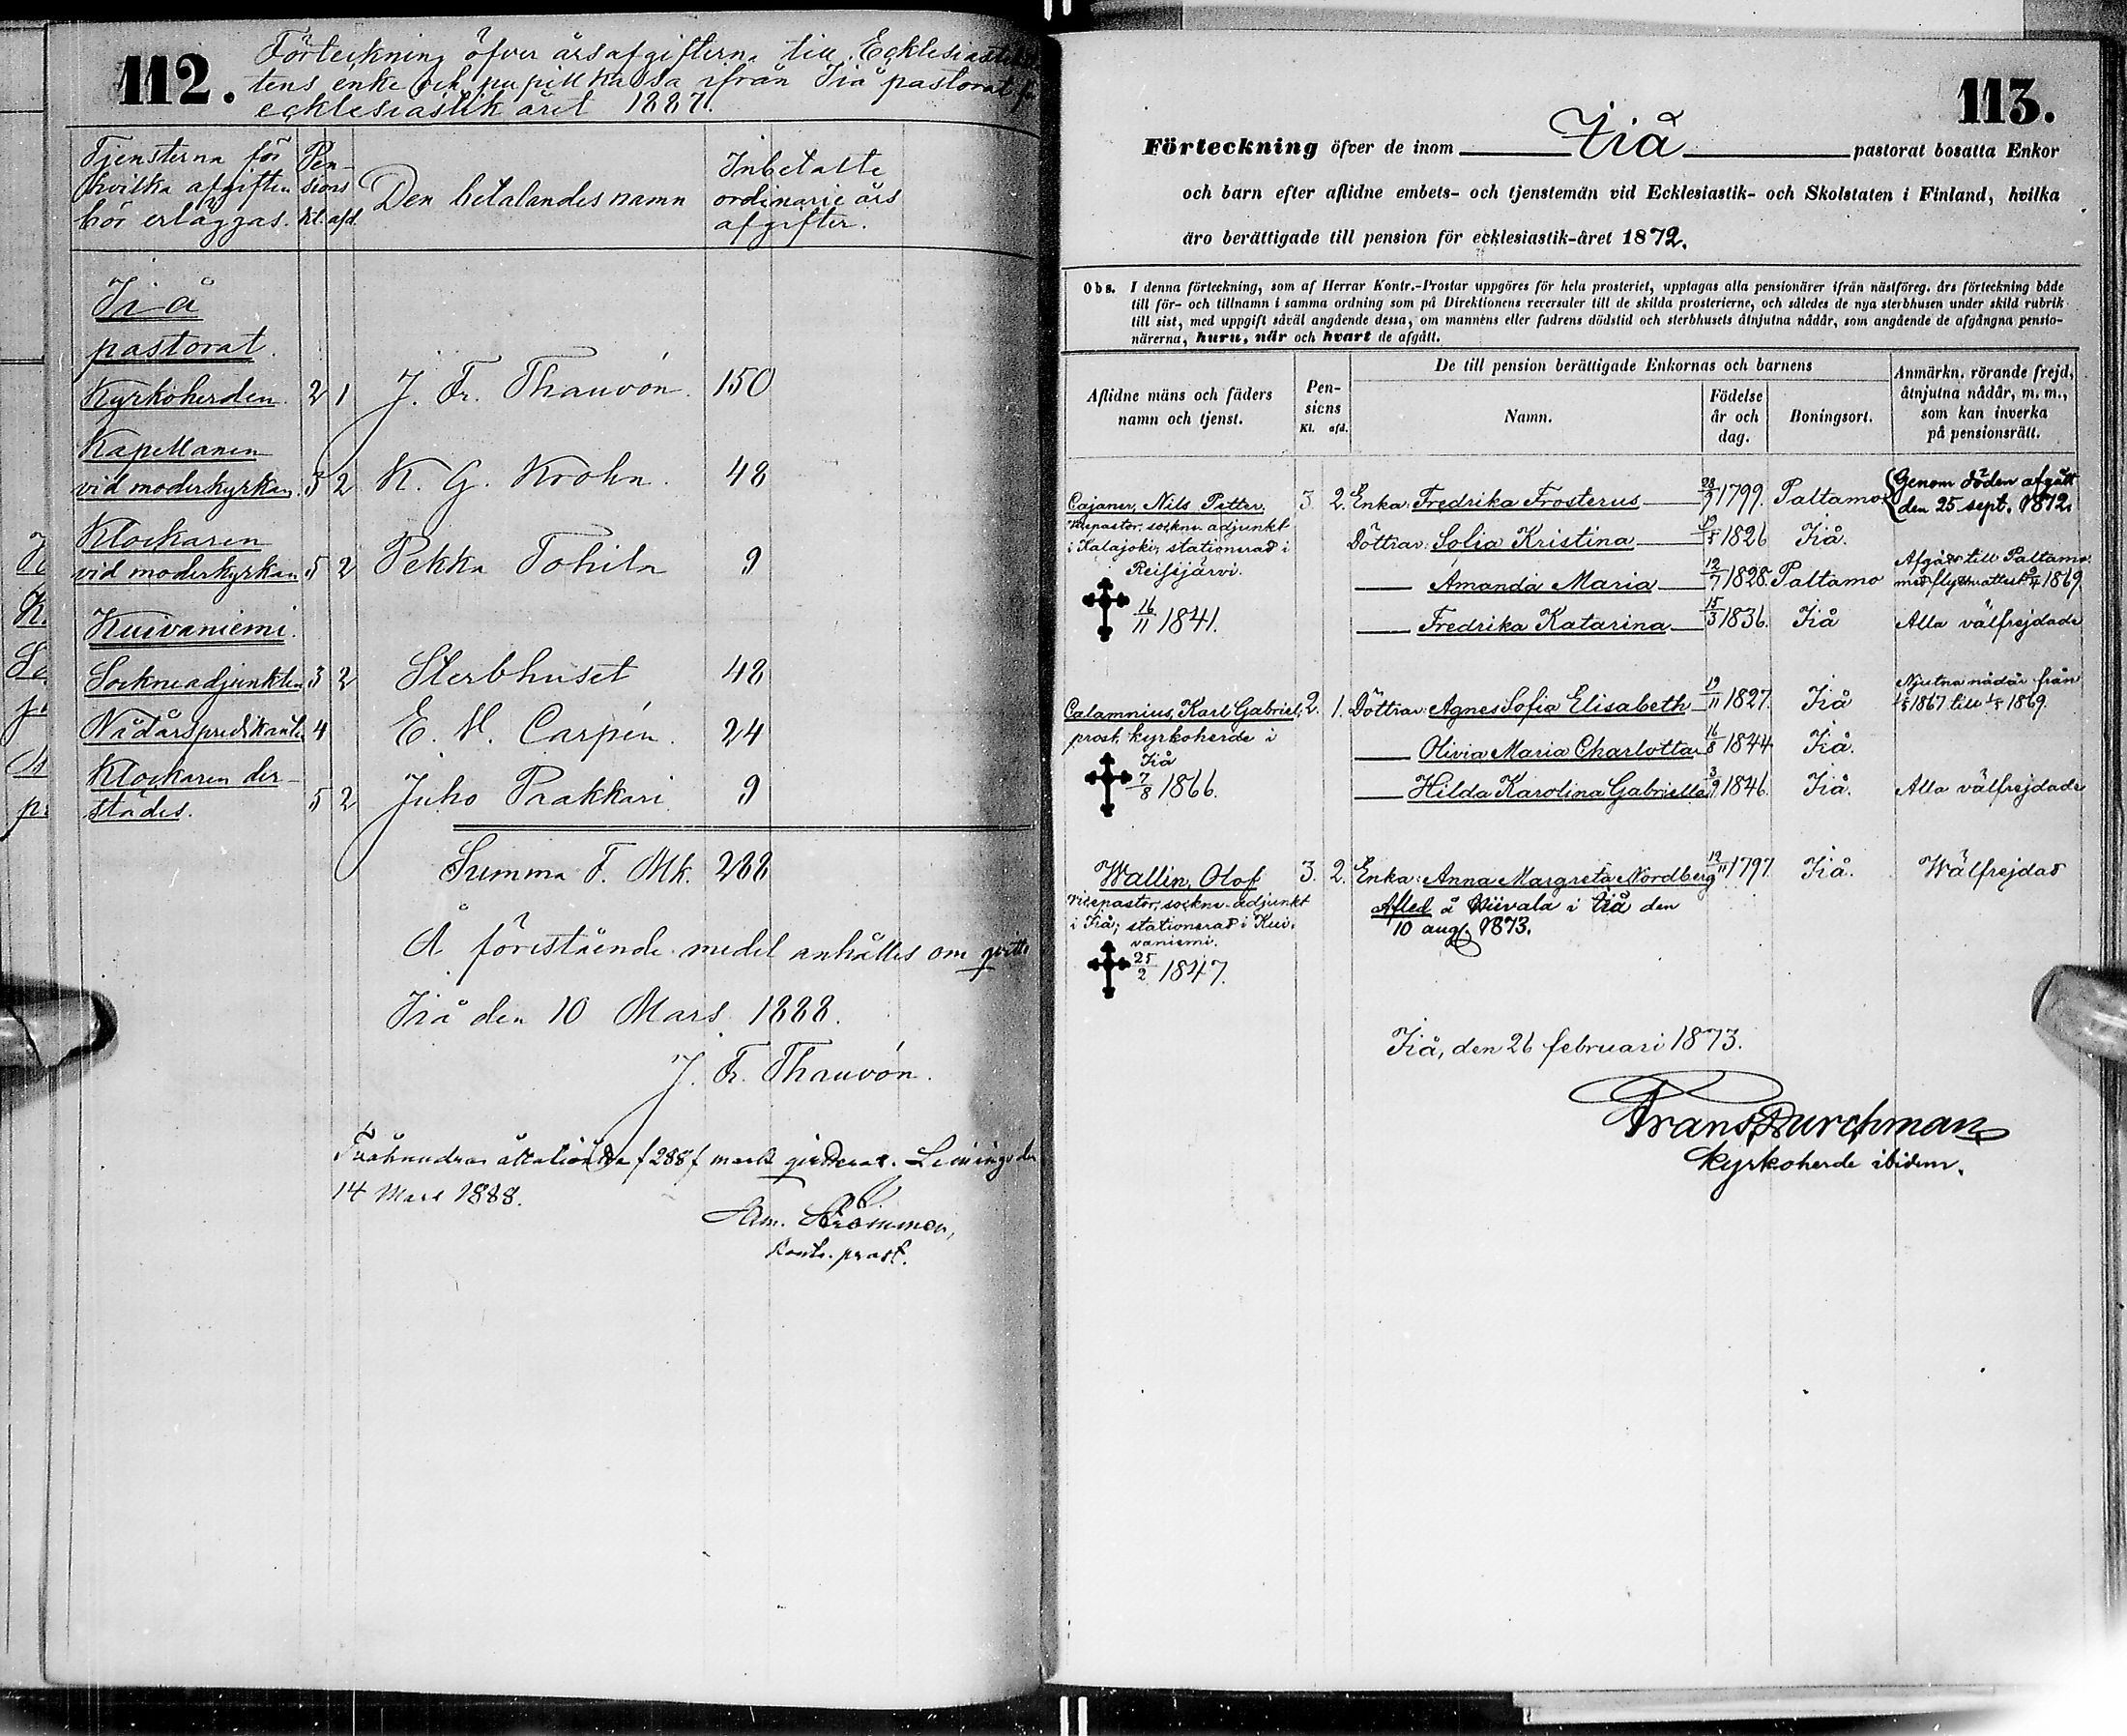 112.
Förteckning öfver årsafgifterna till Ecklesiastiksta
tens enke och pupillkassa ifrån Iiå pastorat f
ecklesiastik året 1887.
Tjensterna för
hvilka afgiften
bör erläggas.
Pen-
sions
kl. afd.
Den betalandes namn
Inbetalte
ordinarie års
afgifter.
Iiå
pastorat.
Kyrkoherden. 2 1 J. Fr. Thauvón. 150
Kapellanen
vid moderkyrkan. 3 2 K. G. Krohn. 48
Klockaren
vid moderkyrkan 5 2 Pekka Tohila 9
Kuivaniemi.
Sockneadjunkten 3 2 Sterbhuset 48
Nådårspredikanten 4 E. M. Carpén. 24
Klockaren der-
städes. 5 2 Juho Paakkari 9
Summa F. Mk. 288
Å förestående medel anhålles om qvitto
Iiå den 10 Mars 1888.
J. Fr. Thauvón.
Tvåhundra åttatioåtta /288/ mark qvitteras. Limingo den
14 Mars 1888.
Kontr. prost.
113.
Förteckning öfver de inom Iiå pastorat bosatta Enkor
och barn efter aflidne embets- och tjenstemän vid Ecklesiastik- och Skolstaten i Finland, hvilka
äro berättigade till pension för ecklesiastik-året 1872.
Obs. I denna förteckning, som af Herrar Kontr.-Prostar uppgöres för hela prosteriet, upptagas alla pensionärer ifrån nästföreg. års förteckning både
till för- och tillnamn i samma ordning som på Direktionens reversaler till de skilda prosterierne, och således de nya sterbhusen under skild rubrik
till sist, med uppgift såväl angående dessa, om mannens eller fadrens dödstid och sterbhusets åtnjutna nådår, som angående de afgångna pensio-
närerna, huru, når och hvart de afgått.
Aflidne mäns och fäders
namn och tjenst.
Pen-
sions
Kl. afd.
De till pension berättigade Enkornas och barnens
Namn.
Födelse
år och
dag.
Boningsort.
Anmärkn. rörande frejd,
åtnjutna nådår, m. m.,
som kan inverka
på pensionsrätt.
Cajaner, Nils Petter, 3. 2. Enka: Fredrika Frosterus 28/7 1799. Paltamo {Genom döden afgått
den 25 sept. 1872.
vicepastor, sockne-adjunkt
i Kalajoki, stationerad i
Reisjärvi.
16/11 1841.
Döttrar: Sofia Kristina 1826 Iiå.
Amanda Maria 12/7 1828. Paltamo Afgått till Paltamo
med flyttn.attest 9/4 1869
Fredrika Katarina 15/3 1836. Iiå Alla välfrejdade
Calamnius, Karl Gabriel, 2. 1. Döttrar: Agnes Sofia Elisabeth 19/11 1827. Iiå Njutna nådår från
1/5 1867 till 1/5 1869.
prost, kyrkoherde i
Iiå
7/8 1866.
Olivia Maria Charlotta 16/8 1844 Iiå.
Hilda Karolina Gabriella 3/9 1846. Iiå. Alla välfrejdade
Wallin, Olof 3. 2. Enka: Anna Margreta Nordberg 12/11 1797. Iiå. Wälfrejdad
vicepastor, sockne-adjunkt
i Iiå; stationerad i Kui-
vaniemi.
25/2 1847.
Afled å Wiivala i Iiå den
10 aug. 1873.
Iiå, den 26 februari 1873.
Frans Durchman
Kyrkoherde ibidem.